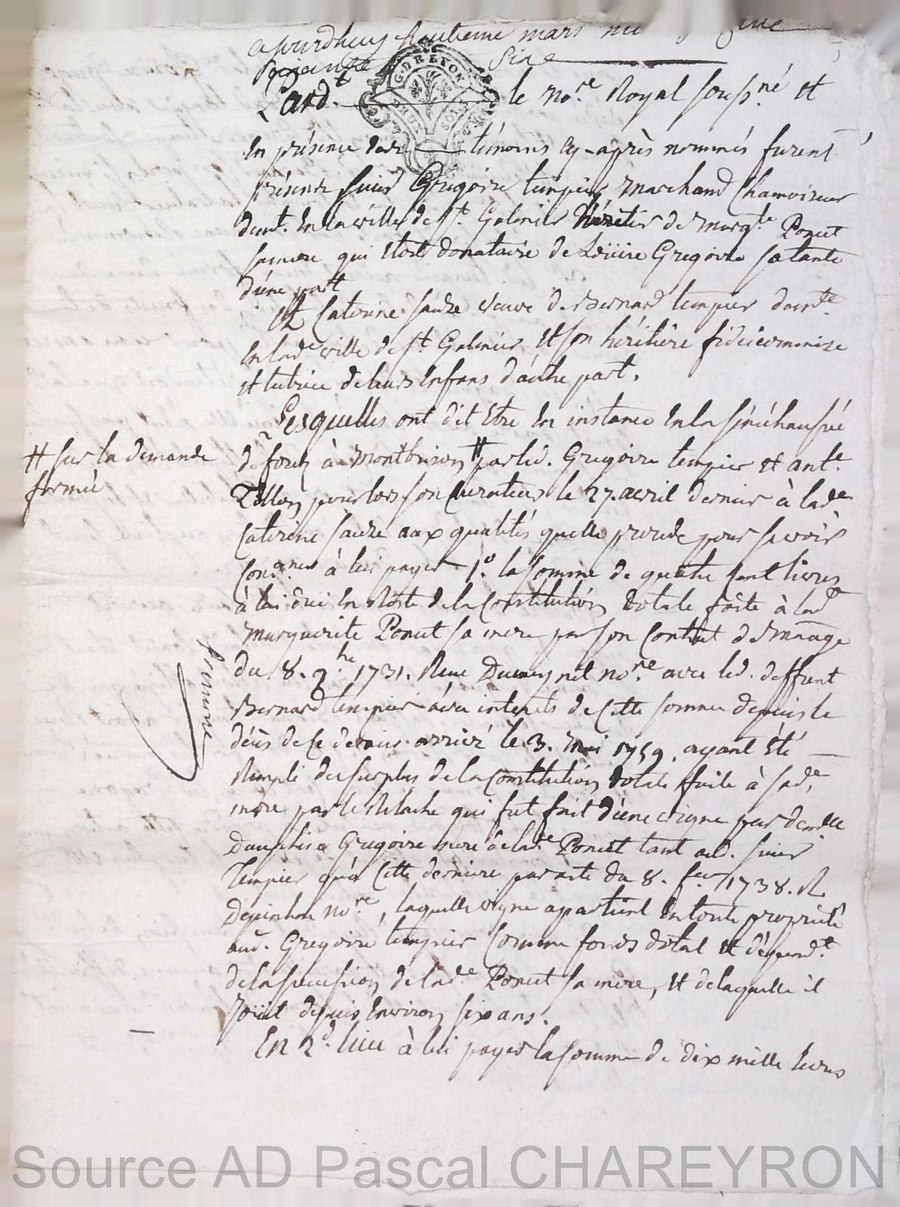 aujourdhuy huitieme mars mil
soixante Six
Pard.t le no.re Royal souss.né et
En présence des témoins cy-après nommés furent
présens sieur Gregoire tempier marchand Chamoiseur
dem.t En la ville de S.t Galmier héritier de marg.te Poncet
sa mere qui Etoit donataire de Gregoire sa tante
d'une part
Et Caterine sauze veuve de Bernard tempier dem.te
En lad.e ville de S.t Galmier, Et son héritière fideicommise
et tutrice de leurs Enfans d'autre part.
Lesquelles ont dit Etre En instance En la sénéchaussé
de forez à Montbrison # par led. Gregoire tempier et ant.e
pour lors son Curateur le 27 avril dernier à lad.e
Caterine sauze aux qualités quelle procede pour se voir
Cond.ner à lui payer 1.o la somme de quatre cent livres
à lui due En Reste de la Constitution dotale faite à lad.e
Marguerite Poncet sa mere par son Contrat de mariage
du 8. 9.bre 1731. Reçu Dumaynil no.re avec led. deffunt
Bernard tempier avec interets de Cette somme depuis le
décès de Ce dernier arrivé le 3. Mai 1759. ayant Eté
Rempli du surplus de la Constitution dotale faite à sad.e
mère par le Relache qui fut fait d'une vigne par
Gregoire mere de lad.e Poncet tant aud. sieur
Tempier qu'a Cette derniere par acte du 8. f.er 1738. R
Depinhac no.re, laquelle vigne apartient En toute proprieté
aud. Gregoire tempier Comme fonds dotal et dépend.t
de la succession de lad.e Poncet sa mère, Et de laquelle il
Jouit depuis Environ six ans.
En 2.d lieu à lui payer la somme de dix mille livres
# sur la demande
formée
Source AD Pascal CHAREYRON